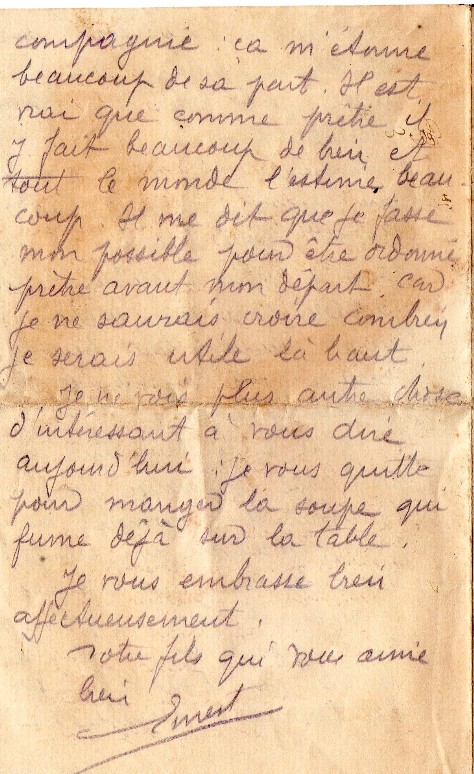 compagnie : ça m'étonne
beaucoup de sa part. Il est
vrai que comme prêtre il
y fait beaucoup de bien et
tout le monde l'estime beau-
coup. Il me dit que je fasse
mon possible pour être ordonné
prêtre avant mon départ car
je ne saurais croire combien
je serais utile là haut.
Je ne vois plus autre chose
d'intéressant à vous dire
aujourd'hui : je vous quitte
pour manger la soupe qui
fume déjà sur la table.
Je vous embrasse bien
affectueusement.
Votre fils qui vous aime
bien
Ernest